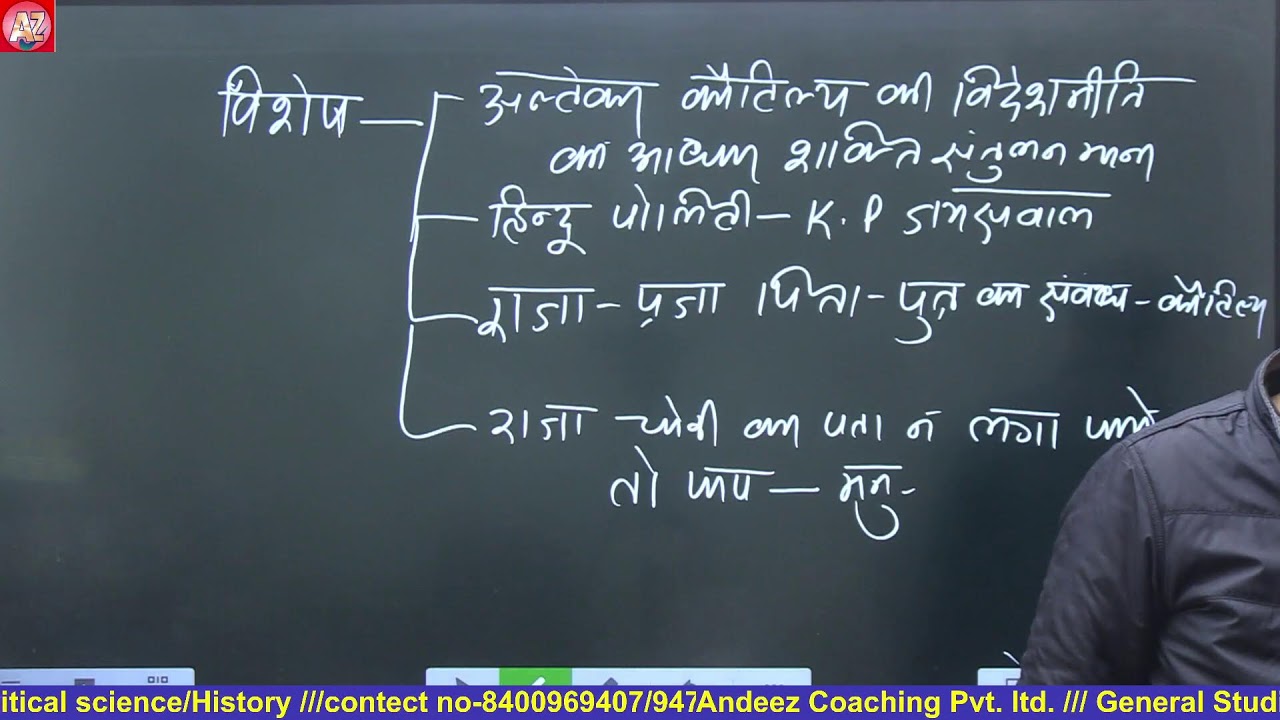 AZ
विशेष
अल्तेकर कौटिल्य की विदेशनीति
का आधार शक्ति संतुलन माना
हिन्दू पोलिटी - K.P जायसवाल
राजा - प्रजा पिता - पुत्र का संबंध - कौटिल्य
राजा - चोरी का पता न लगा पाये
तो पाप - मनु -
itical science/History ///contect no-8400969407/947Andeez Coaching Pvt. ltd. /// General Stud